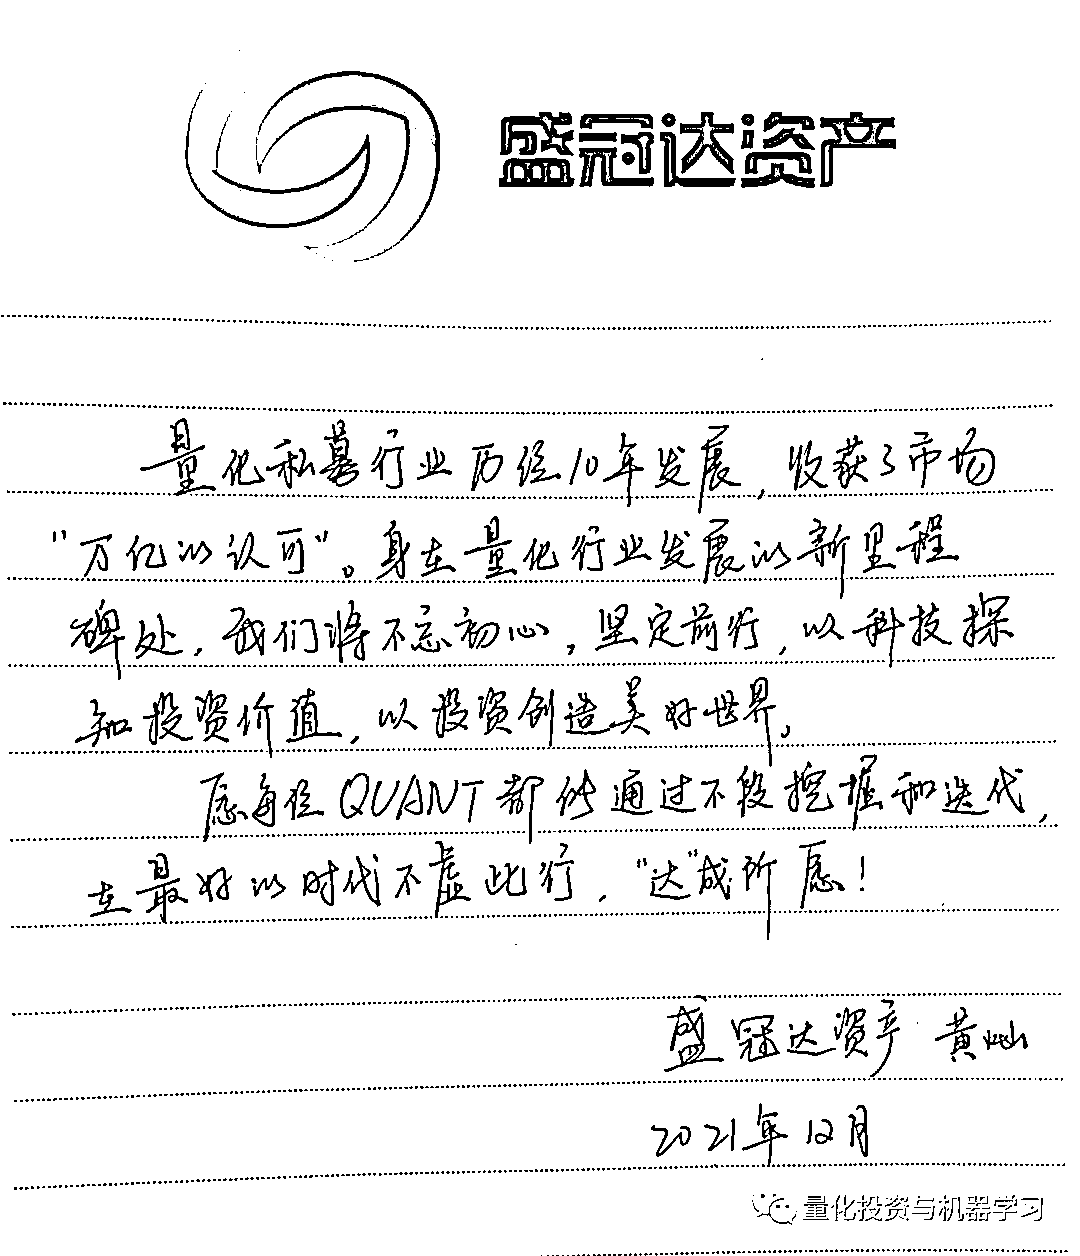 盛冠达资产
量化私募行业历经10年发展，收获了市场
“万亿的认可”。身在量化行业发展的新里程
碑处，我们将不忘初心，坚定前行，以科技探
知投资价值，以投资创造美好世界。
愿每位QUANT都能通过不段挖掘和迭代，
在最好的时代不虚此行，“达”成所愿！
盛冠达资产 黄灿
2021年12月
量化投资与机器学习